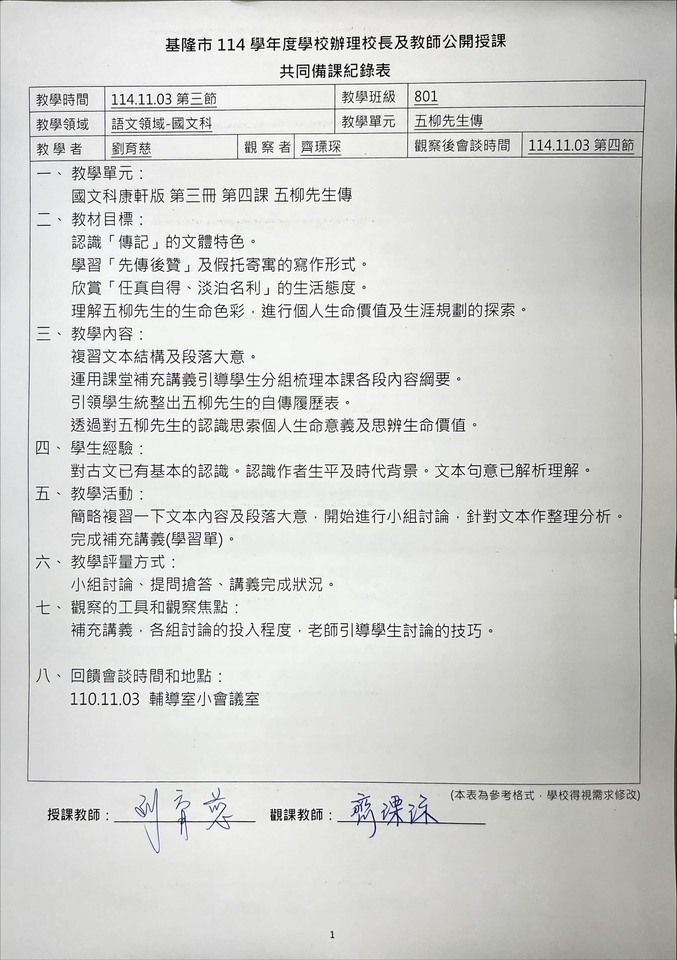 基隆市 114 學年度學校辦理校長及教師公開授課
共同備課紀錄表
教學時間 114.11.03 第三節 教學班級 801
教學領域 語文領域-國文科 教學單元 五柳先生傳
教學者 劉育慈 觀察者 齊瑮琛 觀察後會談時間 114.11.03 第四節
一、 教學單元：
國文科康軒版 第三冊 第四課 五柳先生傳
二、 教材目標：
認識「傳記」的文體特色。
學習「先傳後贊」及假托寄寓的寫作形式。
欣賞「任真自得、淡泊名利」的生活態度。
理解五柳先生的生命色彩，進行個人生命價值及生涯規劃的探索。
三、 教學內容：
複習文本結構及段落大意。
運用課堂補充講義引導學生分組梳理本課各段內容綱要。
引領學生統整出五柳先生的自傳履歷表。
透過對五柳先生的認識思索個人生命意義及思辨生命價值。
四、 學生經驗：
對古文已有基本的認識。認識作者生平及時代背景。文本句意已解析理解。
五、 教學活動：
簡略複習一下文本內容及段落大意，開始進行小組討論，針對文本作整理分析。
完成補充講義(學習單)。
六、 教學評量方式：
小組討論、提問搶答、講義完成狀況。
七、 觀察的工具和觀察焦點：
補充講義，各組討論的投入程度，老師引導學生討論的技巧。
八、 回饋會談時間和地點：
110.11.03 輔導室小會議室
(本表為參考格式，學校得視需求修改)
授課教師： 劉育慈 觀課教師： 齊瑮琛
1